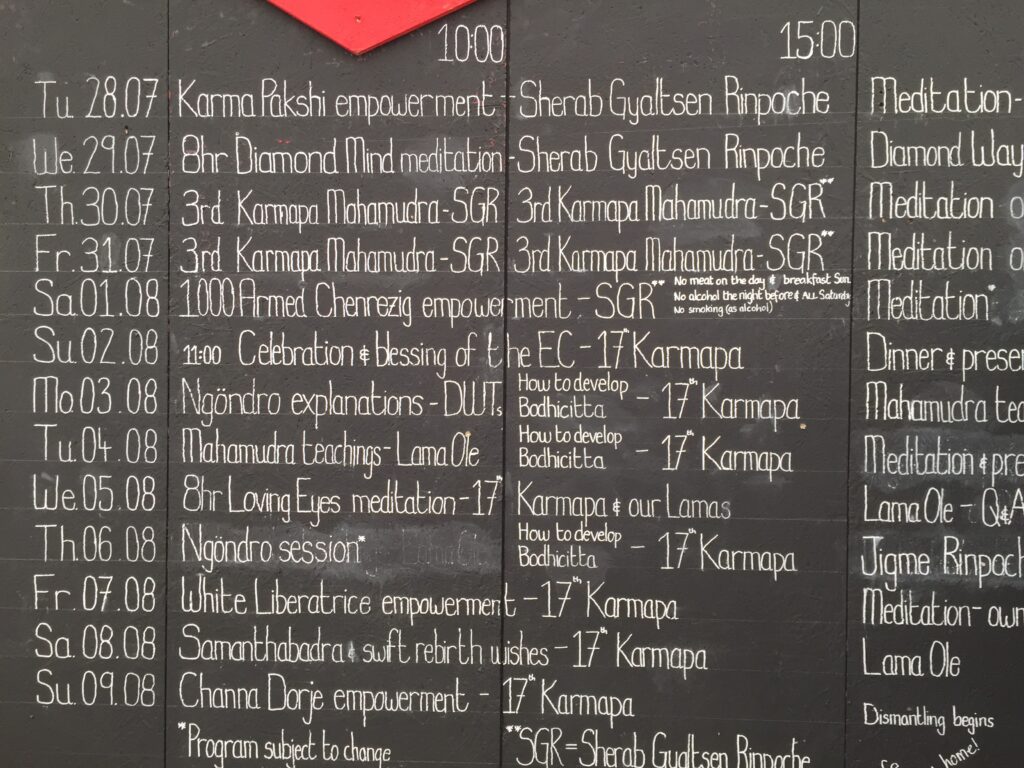 10:00 15:00
Tu 28.07 Karma Pakshi empowerment - Sherab Gyaltsen Rinpoche Meditation-
We 29.07 8hr Diamond Mind meditation - Sherab Gyaltsen Rinpoche Diamond Way
Th.30.07 3rd Karmapa Mahamudra-SGR 3rd Karmapa Mahamudra-SGR** Meditation
Fr.31.07 3rd Karmapa Mahamudra-SGR 3rd Karmapa Mahamudra-SGR** Meditation
Sa.01.08 1000 Armed Chenrezig empowerment - SGR** Meditation*
No meat on the day & breakfast Sun.
No alcohol the night before & ALL
No smoking (as alcohol)
Su.02.08 11:00 Celebration & blessing of the EC - 17th Karmapa Dinner &
Mo.03.08 Ngöndro explanations - DWTs How to develop Bodhicitta - 17th Karmapa Mahamudra
Tu.04.08 Mahamudra teachings - Lama Ole How to develop Bodhicitta - 17th Karmapa Meditation &
We.05.08 8hr Loving Eyes meditation - 17th Karmapa & our Lamas Lama Ole - Q&A
Th.06.08 Ngöndro session* How to develop Bodhicitta - 17th Karmapa Jigme
Fr.07.08 White Liberatrice empowerment - 17th Karmapa Meditation - own
Sa.08.08 Samanthabadra & swift rebirth wishes - 17th Karmapa Lama Ole
Su.09.08 Channa Dorje empowerment - 17th Karmapa Dismantling begins
*Program subject to change **SGR = Sherab Gyaltsen Rinpoche home!